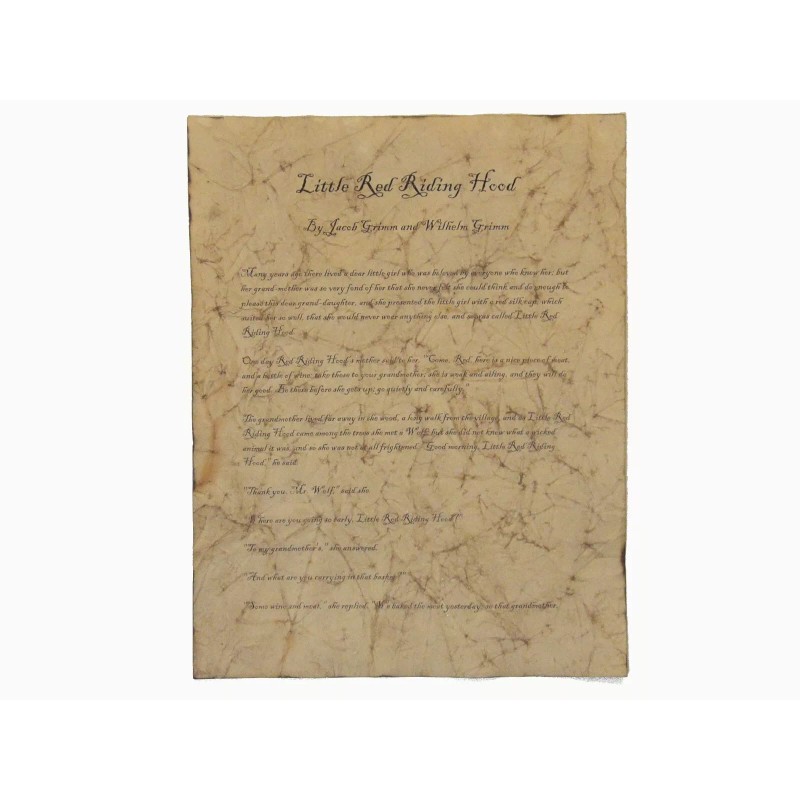 Little Red Riding Hood
By Jacob Grimm and Wilhelm Grimm
Many years ago there lived a dear little girl who was beloved by everyone who knew her; but
her grand-mother was so very fond of her that she never felt she could think and do enough to
please this dear grand-daughter, and she presented the little girl with a red silk cap, which
suited her so well, that she would never wear anything else, and so was called Little Red
Riding Hood.
One day Red Riding Hood's mother said to her, "Come, Red, here is a nice piece of meat,
and a bottle of wine; take these to your grandmother; she is weak and ailing, and they will do
her good. Be there before she gets up; go quietly and carefully."
The grandmother lived far away in the wood, a long walk from the village, and as Little Red
Riding Hood came among the trees she met a Wolf; but she did not know what a wicked
animal it was, and so she was not at all frightened. "Good morning, Little Red Riding
Hood," he said.
"Thank you, Mr. Wolf," said she.
"Where are you going so early, Little Red Riding Hood?"
"To my grandmother's," she answered.
"And what are you carrying in that basket?"
"Some wine and meat," she replied. "We baked the meat yesterday, so that grandmother,